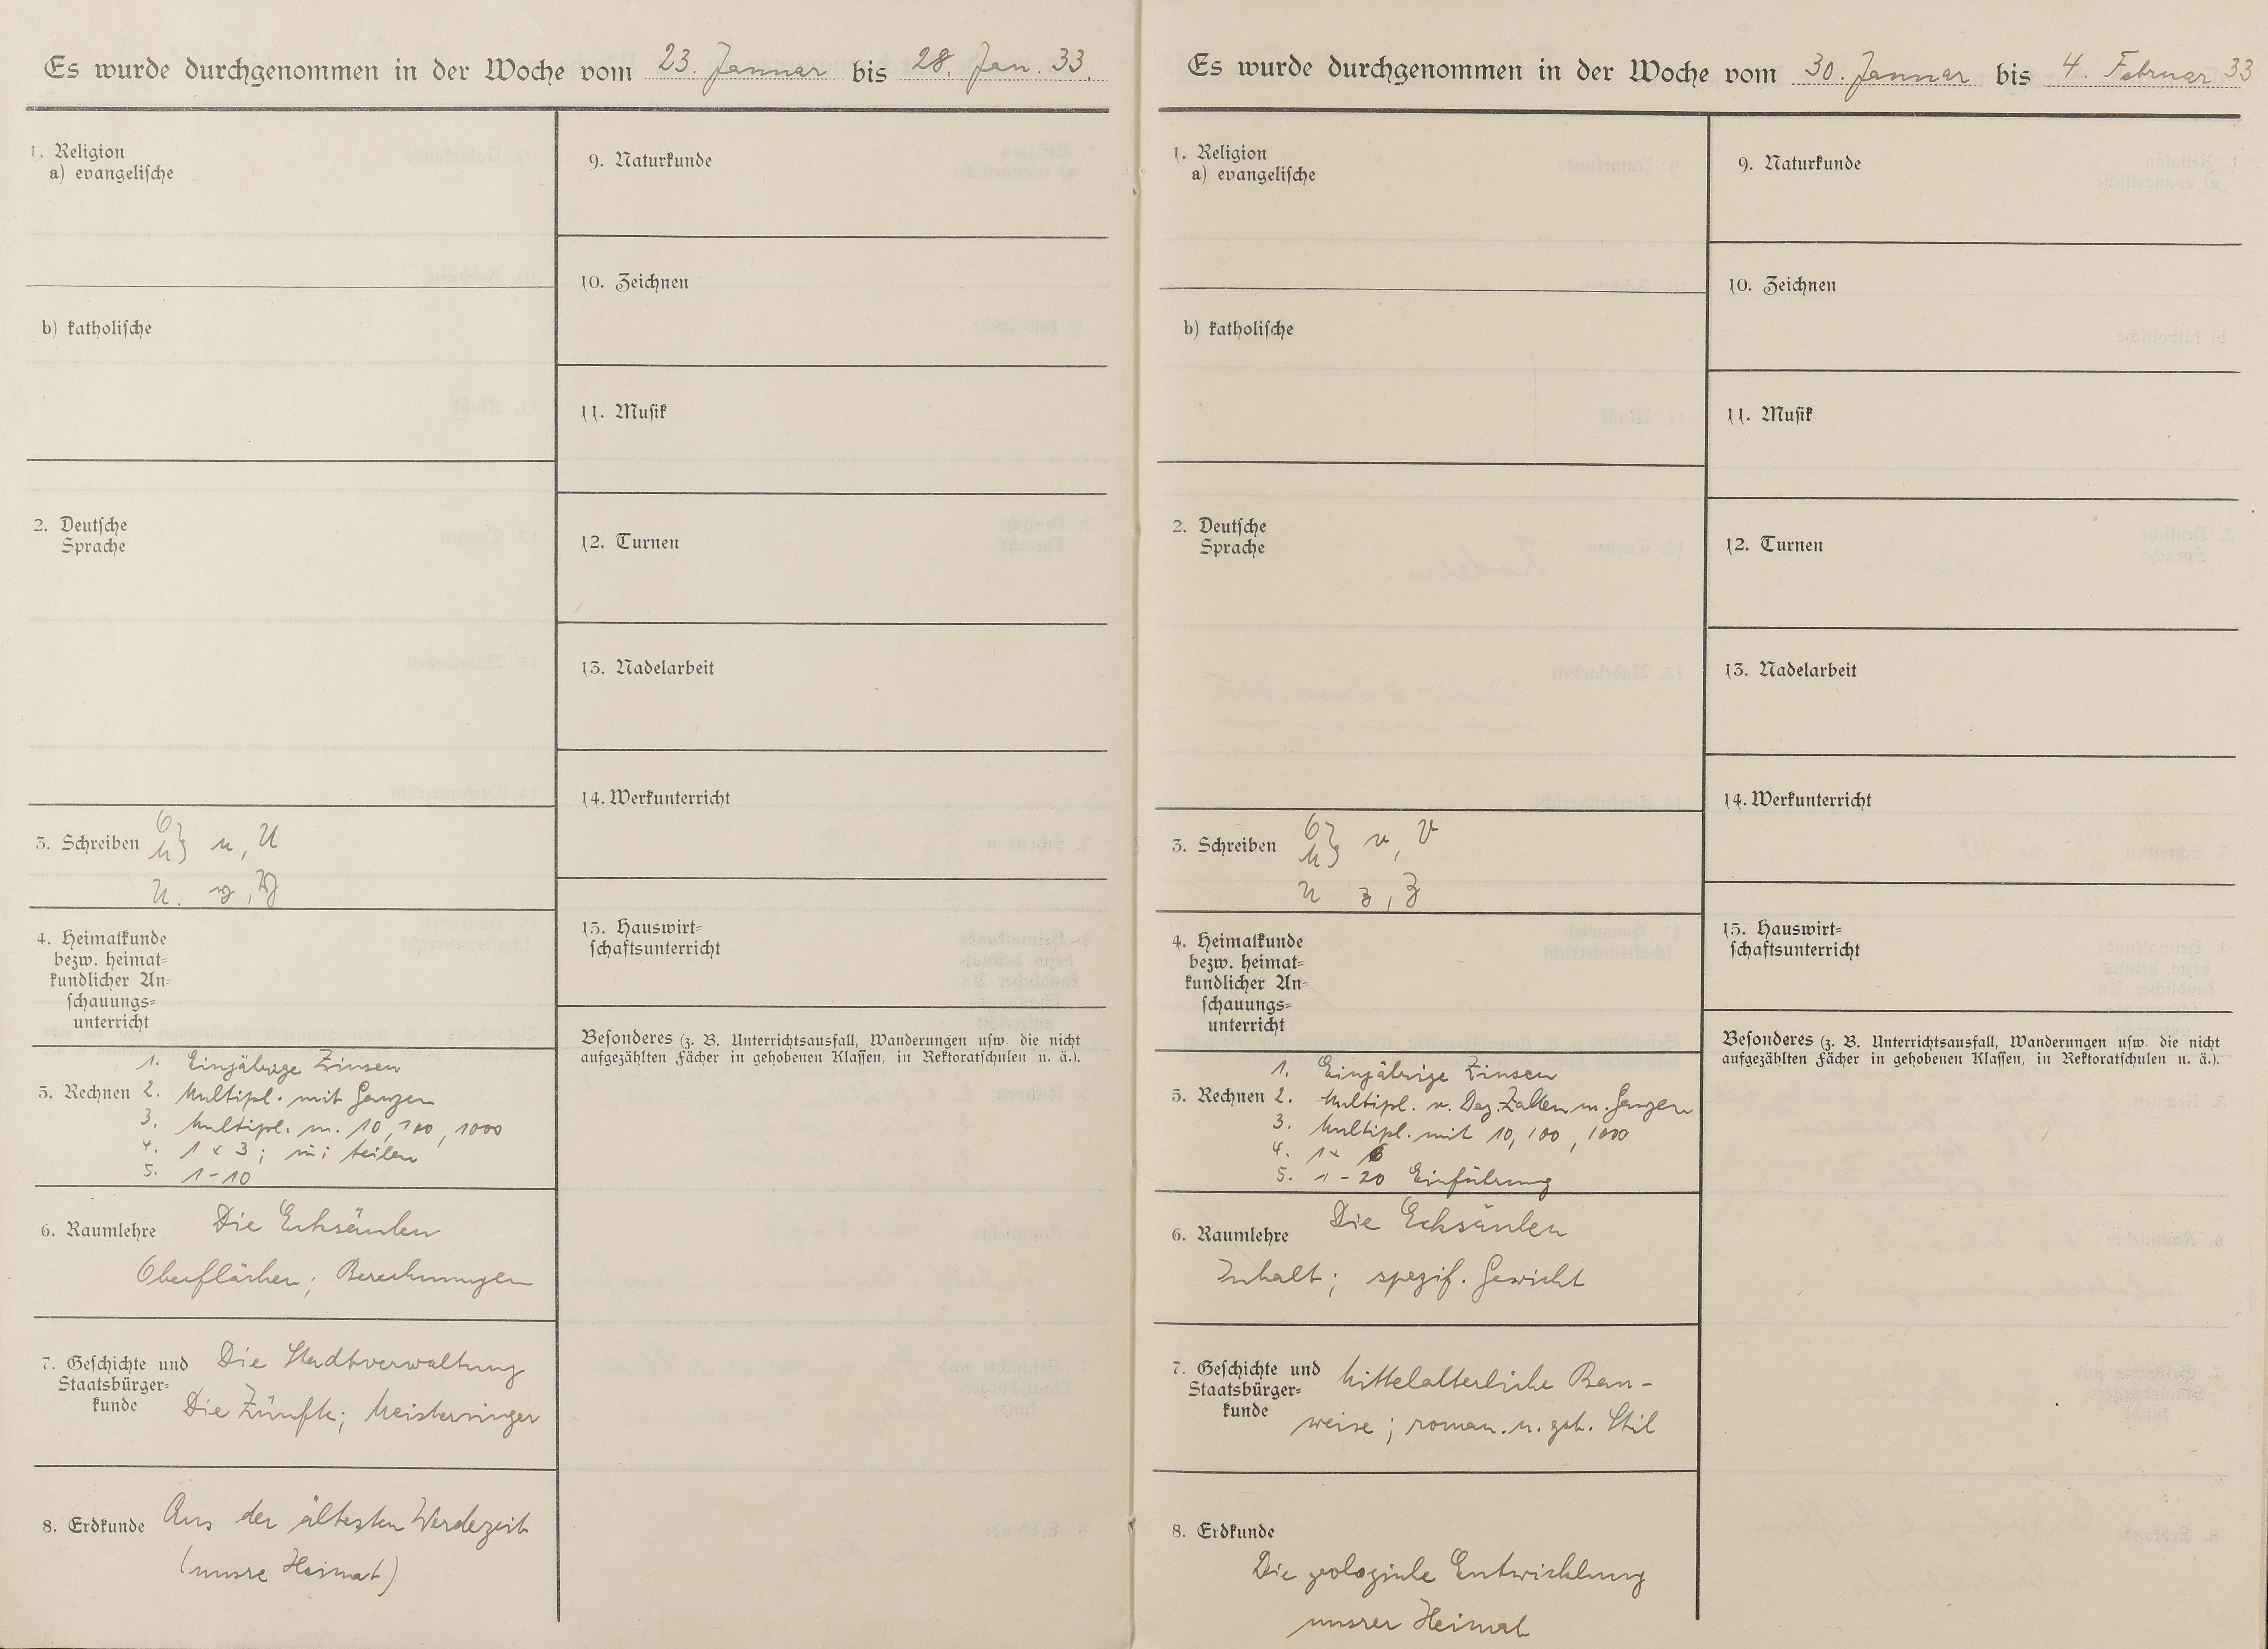 Es wurde durchgenommen in der Woche vom 23. Januar bis 28. Jan. 33.
1. Religion
a) evangelische
b) katholische
2. Deutsche
Sprache
3. Schreiben O} u, U
M}
U.
4. Heimatkunde
bezw. heimat=
kundlicher An=
schauungs=
unterricht
1. Einjährige Zinsen
5. Rechnen 2. Multipl. mit Ganzen
3. Multipl. m. 10, 100, 1000
4. 1 x 3; mi teilen
5. 1-10
6. Raumlehre Die Ecksäulen
Oberflächen; Berechnungen
7. Geschichte und Die Stadtverwaltung
Staatsbürger=
kunde Die Zünfte; Meistersinger
8. Erdkunde Aus der ältesten Werdezeit
(unsre Heimat)
9. Naturkunde
10. Zeichnen
11. Musik
12. Turnen
13. Nadelarbeit
14. Werkunterricht
15. Hauswirt=
schaftsunterricht
Besonderes (z. B. Unterrichtsausfall, Wanderungen usw. die nicht
aufgezählten Fächer in gehobenen Klassen, in Rektoratschulen u. ä.).
Es wurde durchgenommen in der Woche vom 30. Januar bis 4. Februar 33
1. Religion
a) evangelische
b) katholische
2. Deutsche
Sprache
3. Schreiben O} v, V
M}
U z, Z
4. Heimatkunde
bezw. heimat=
kundlicher An=
schauungs=
unterricht
1. Einjährige Zinsen
5. Rechnen 2. Multipl. v. Dez. Zahlen m. Ganzen
3. Multipl. mit 10, 100, 1000
4. 1x 6
5. 1-20 Einführung
6. Raumlehre Die Ecksäulen
Inhalt; spezif. Gewicht
7. Geschichte und Mittelalterliche Bau-
Staatsbürger=
kunde weise; roman. u. got. Stil
8. Erdkunde
Die geologische Entwicklung
unsrer Heimat
9. Naturkunde
10. Zeichnen
11. Musik
12. Turnen
13. Nadelarbeit
14. Werkunterricht
15. Hauswirt=
schaftsunterricht
Besonderes (z. B. Unterrichtsausfall, Wanderungen usw. die nicht
aufgezählten Fächer in gehobenen Klassen, in Rektoratschulen u. ä.).